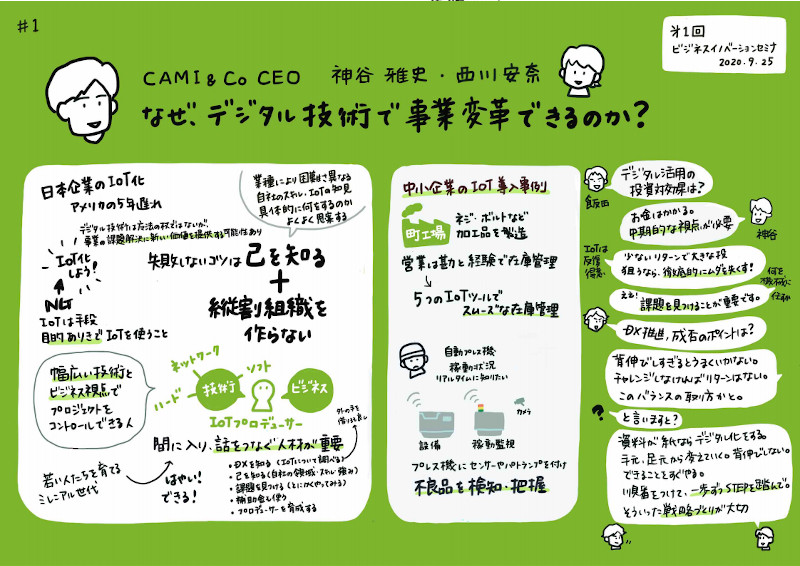 #1
第1回
ビジネスイノベーションセミナ
2020.9.25
CAMI&Co CEO 神谷 雅史・西川安奈
なぜ、デジタル技術で事業変革できるのか?
日本企業のIoT化
アメリカの5年遅れ
業種により困難さ異なる
自社のスキル、IoTの知見
具体的に何をするのか
よくよく思案する
デジタル技術は万法の杖ではないが、
事業の課題解決に新しい価値を提供する可能性あり
IoT化
しよう!
NG
IoTは手段
目的ありきでIoTを使うこと
失敗しないコツは 己を知る
+
縦割り組織を
作らない
幅広い技術と
ビジネス視点で
プロジェクトを
コントロールできる人
ネットワーク
ソフト
ハード
技術
ビジネス
IoTプロデューサー
外の手を
借りるも良し
間に入り、話をつなぐ人材が重要
若い人たちを育てる
ミレニアル世代
はやい!
できる!
・DXを知る(IoTについて調べる)
・己を知る(自社の領域・スキル・強み)
・課題を見つける(とにかくやってみる)
・補助金も使う
・プロデューサーを育成する
中小企業のIoT導入事例
町工場
ネジ・ボルトなど
加工品を製造
営業は勘と経験で在庫管理
5つのIoTツールで
スムーズな在庫管理
自動プレス機
稼動状況
リアルタイムに知りたい
カメラ
設備
稼動監視
プレス機にセンサーやパトランプを付け
不良品を検知・把握
デジタル活用の
投資対効果は?
飯田
お金はかかる。
中期的な視点が必要
神谷
IoTは
反復
得意
少ないリターンで大きな投
狙うなら、徹底的にムダを失くす!
何を
機械に
任せ
える! 課題を見つけることが重要です。
DX推進、成否のポイントは?
背伸びしすぎるとうまくいかない。
チャレンジしなければリターンはない。
このバランスの取り方かと。
?
と言いますと?
資料が紙ならデジタル化をする。
手元、足元から変えていく。背伸びしない。
できることをすぐやる。
順番をつけて、一歩ずつSTEPを踏んで。
そういった戦略づくりが大切